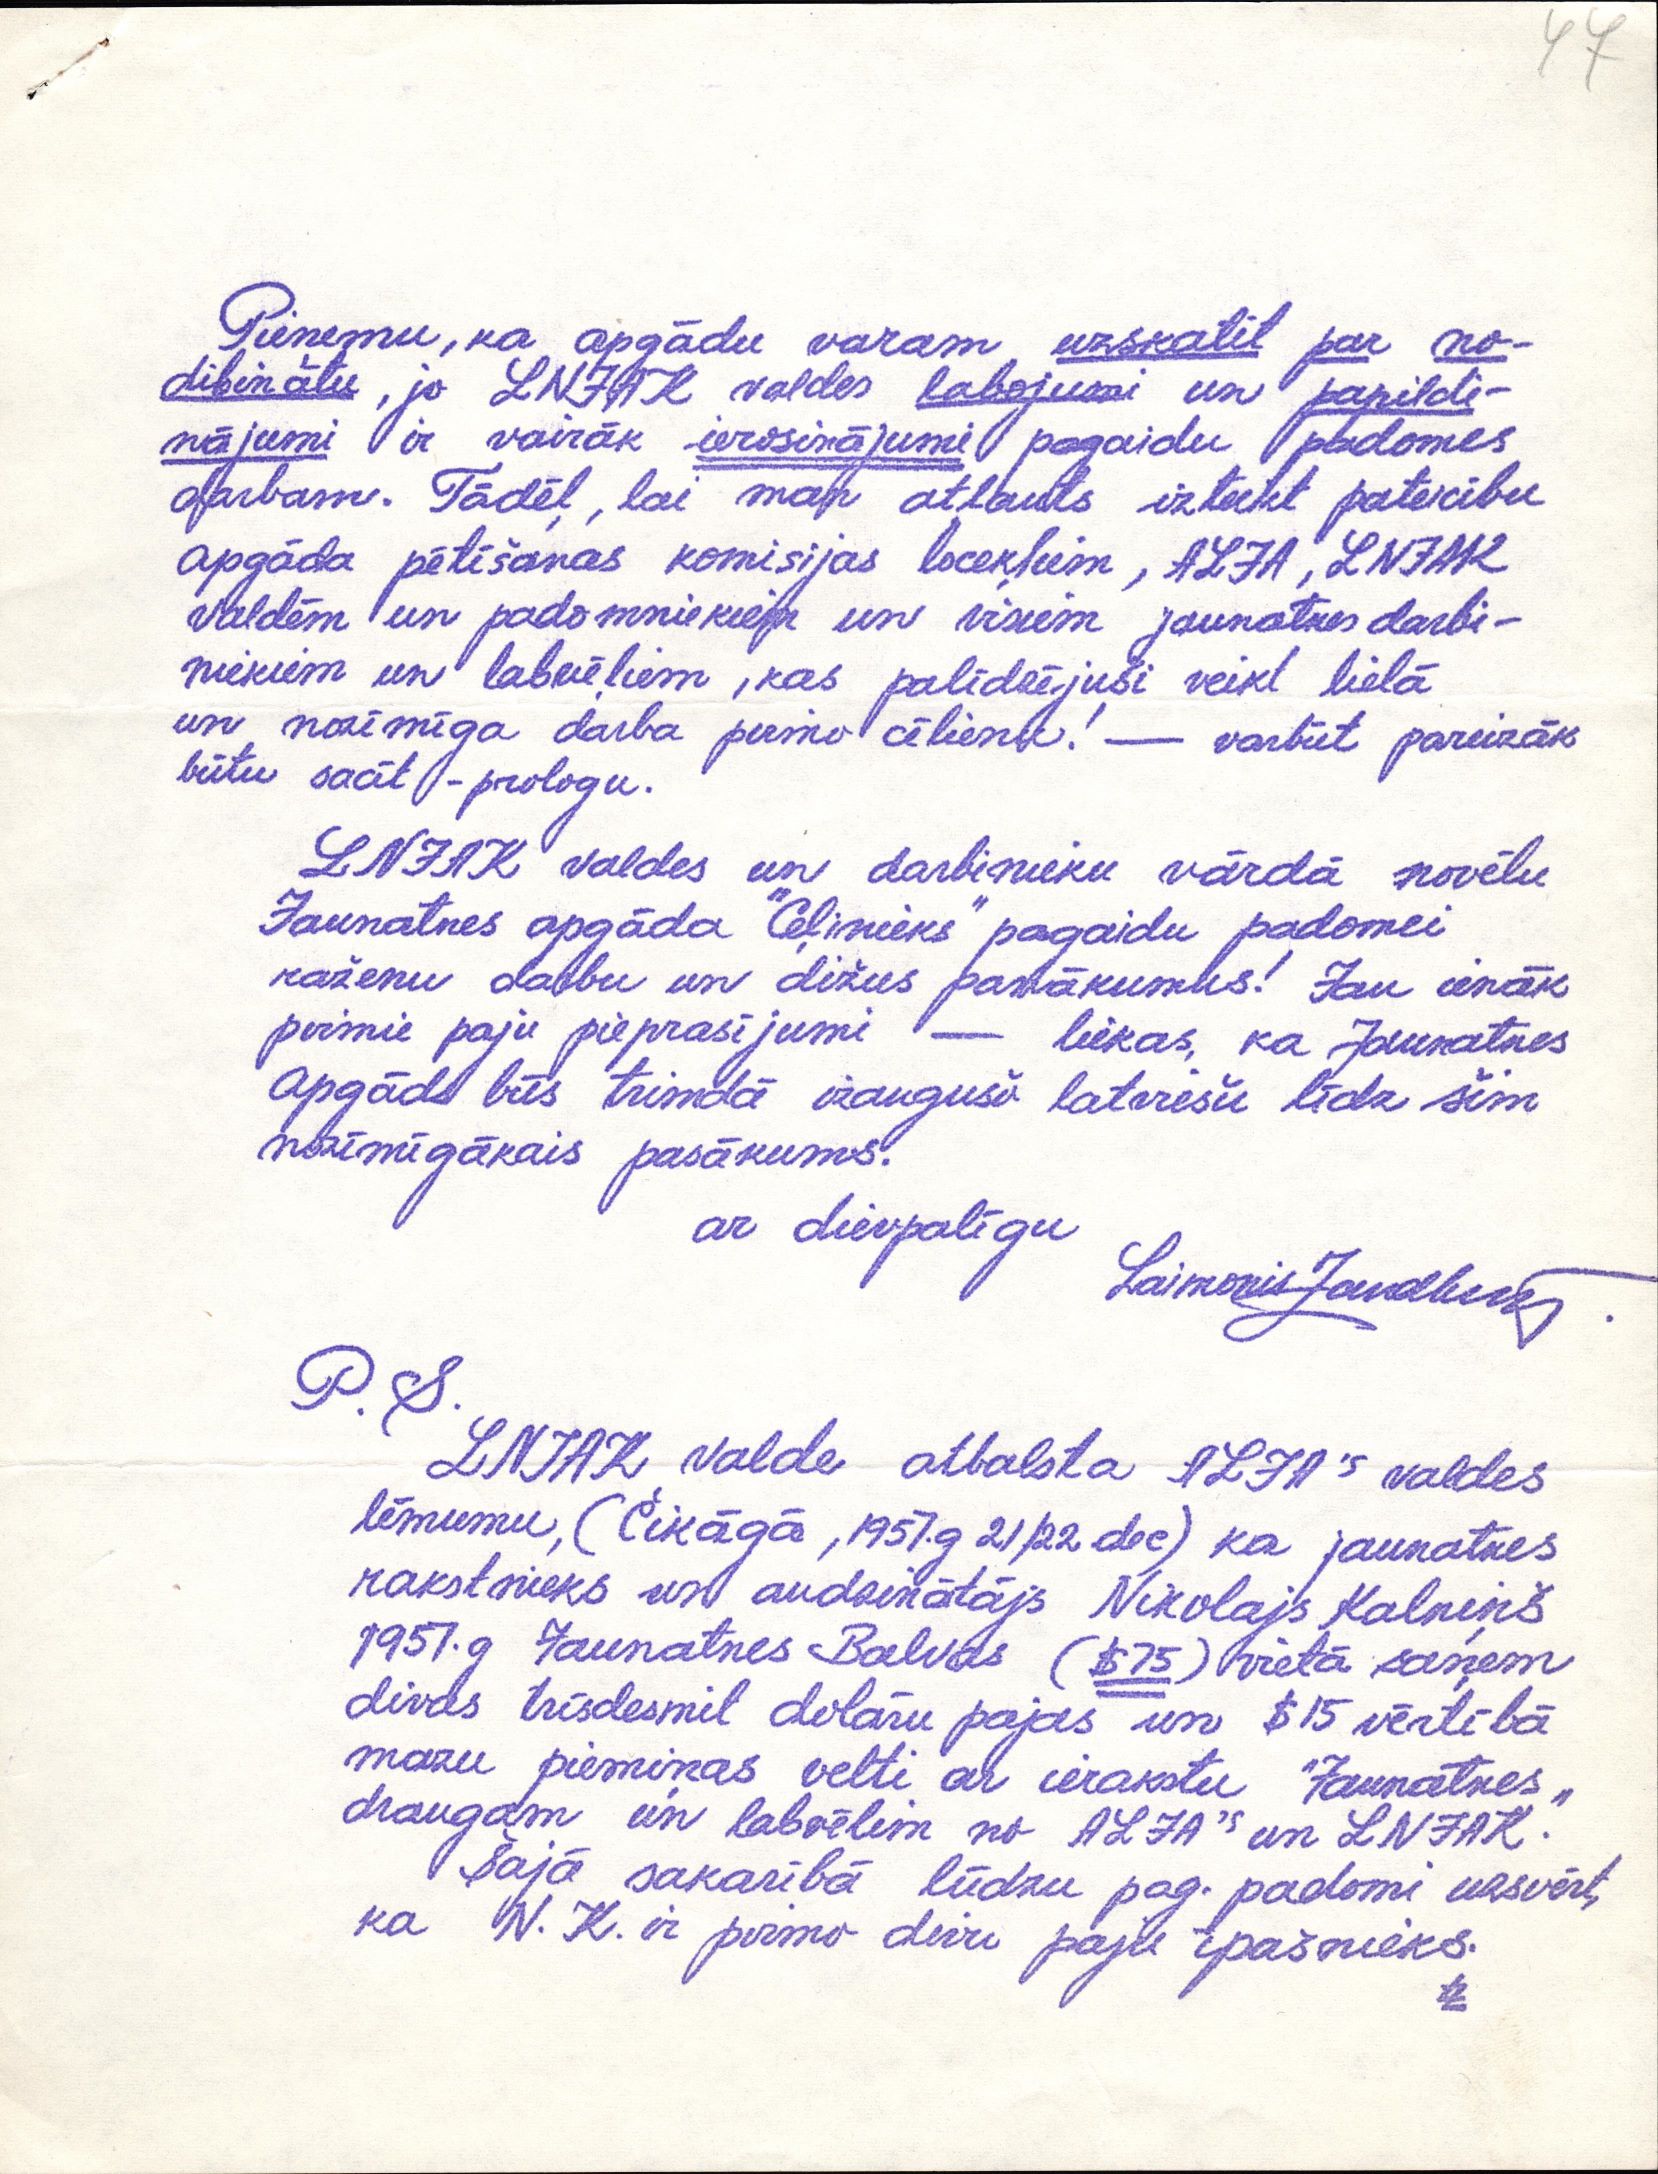 47
Pieņemu, ka apgādu varam uzskatīt par no-
dibinātu, jo LNJAK valdes labojumi un papildi-
nājumi ir vairāk ierosinājumi pagaidu padomes
darbam. Tādēļ, lai man atļauts izteikt pateicību
apgāda pētīšanas komisijas locekļiem, ALJA, LNJAK
valdēm un padomniekiem un visiem jaunatnes darbi-
niekiem un labvēļiem, kas palīdzējuši veikt lielā
un nozīmīga darba pirmo cēlienu! — varbūt pareizāk
būtu sacīt - prologu.
LNJAK valdes un darbinieku vārdā novēlu
Jaunatnes apgāda "Ceļinieks" pagaidu padomei
raženu darbu un dižus panākumus! Jau ienāk
pirmie paju pieprasījumi — liekas, ka Jaunatnes
Apgāds būs trimdā izaugušo latviešu līdz šim
nozīmīgākais pasākums.
ar dievpalīgu
Laimonis
P.S.
LNJAK valde atbalsta ALJA's valdes
lēmumu, (Čikāgā, 1957.g 21/22 dec) ka jaunatnes
rakstnieks un audzinātājs Nikolajs Kalniņš
1957.g Jaunatnes Balvas ($75) vietā saņem
divas trīsdesmit dolāru pajas un $15 vērtībā
mazu piemiņas velti ar ierakstu "Jaunatnes„
draugam un labvēlim no ALJA's un LNJAK.
Šajā sakarībā lūdzu pag. padomi uzsvērt,
ka N. K. ir pirmo divu paju īpašnieks.